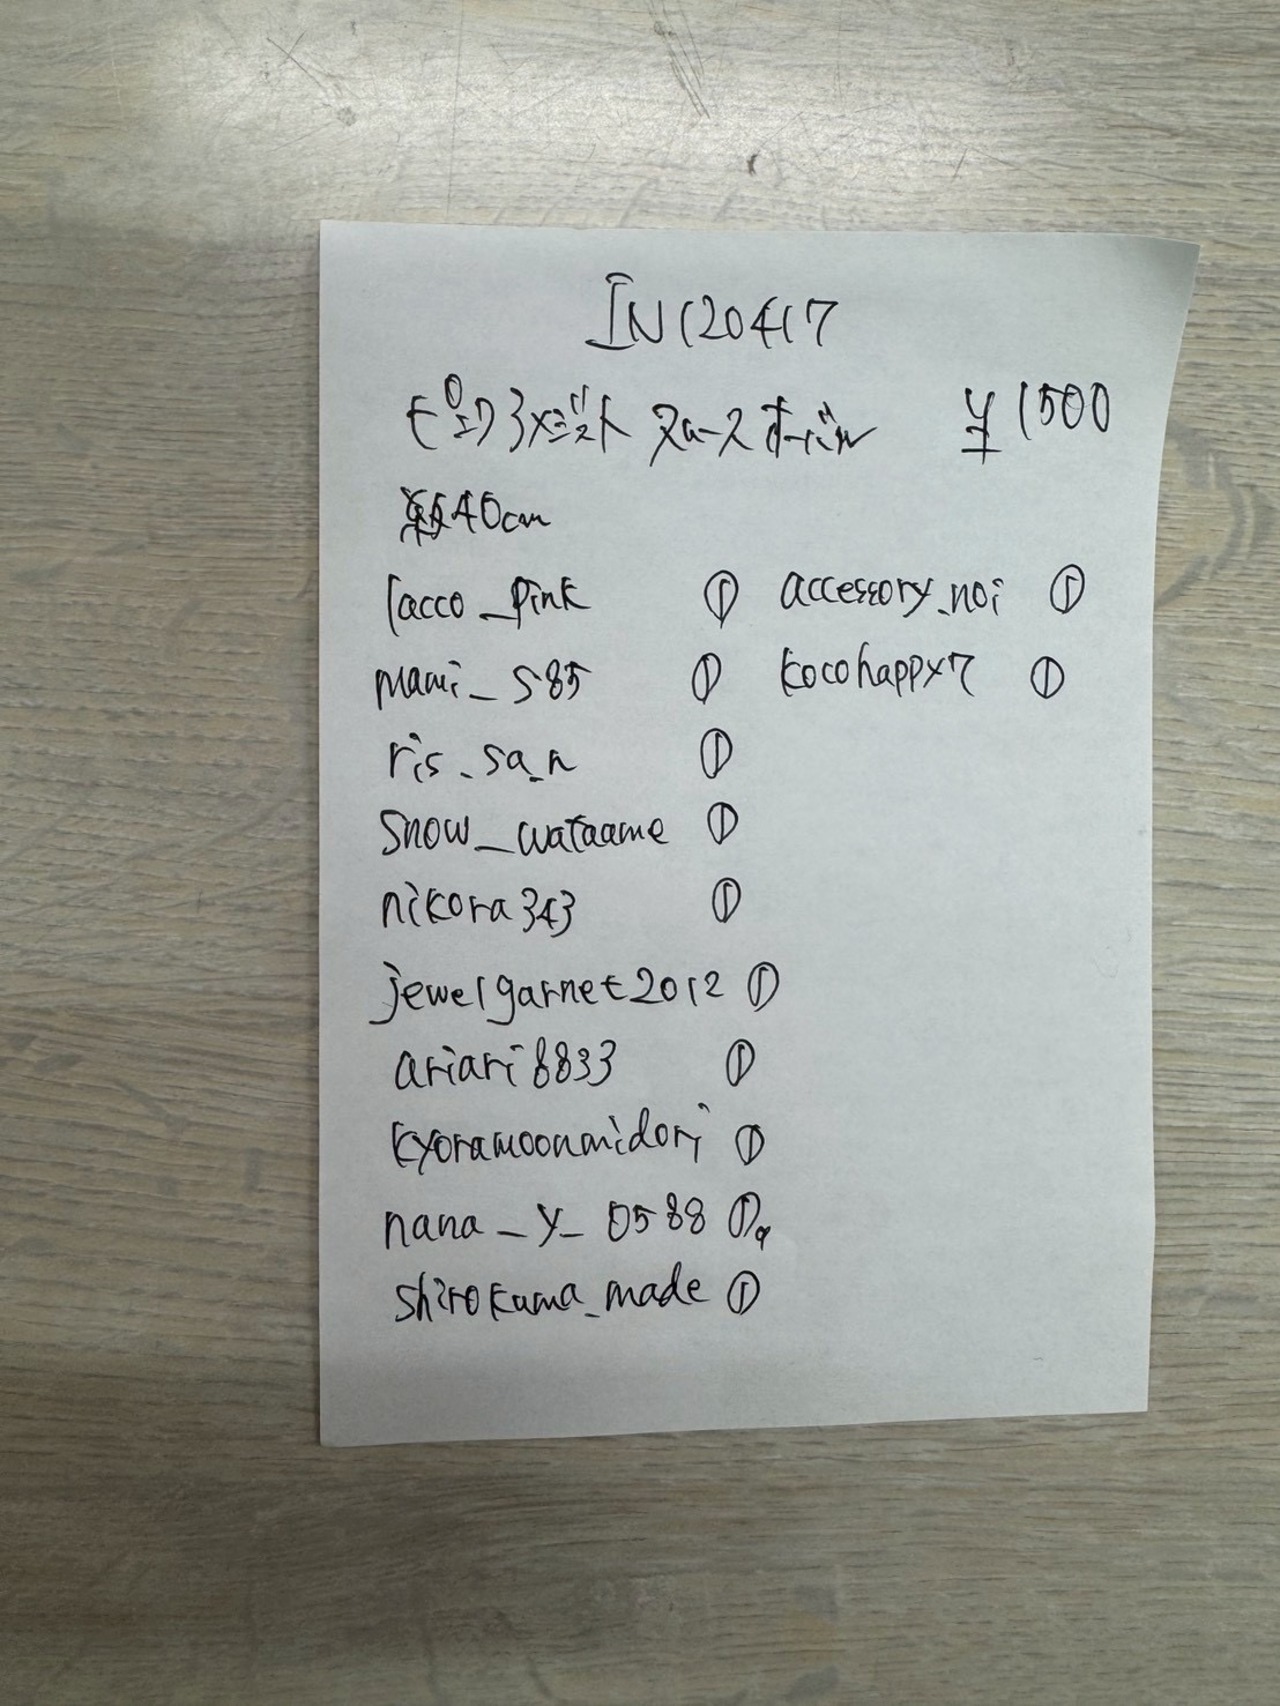 IN120417
ピンクアメジスト スムースオーバル ¥1500
約40cm
lacco_pink ①
mami_s85 ①
ris_sa_n ①
snow_wataame ①
nikora343 ①
jewelgarnet2012 ①
ariari8833 ①
kyoramoonmidori ①
nana_y_0588 ①
shirokuma_made ①
accessory_noi ①
kocohappy7 ①